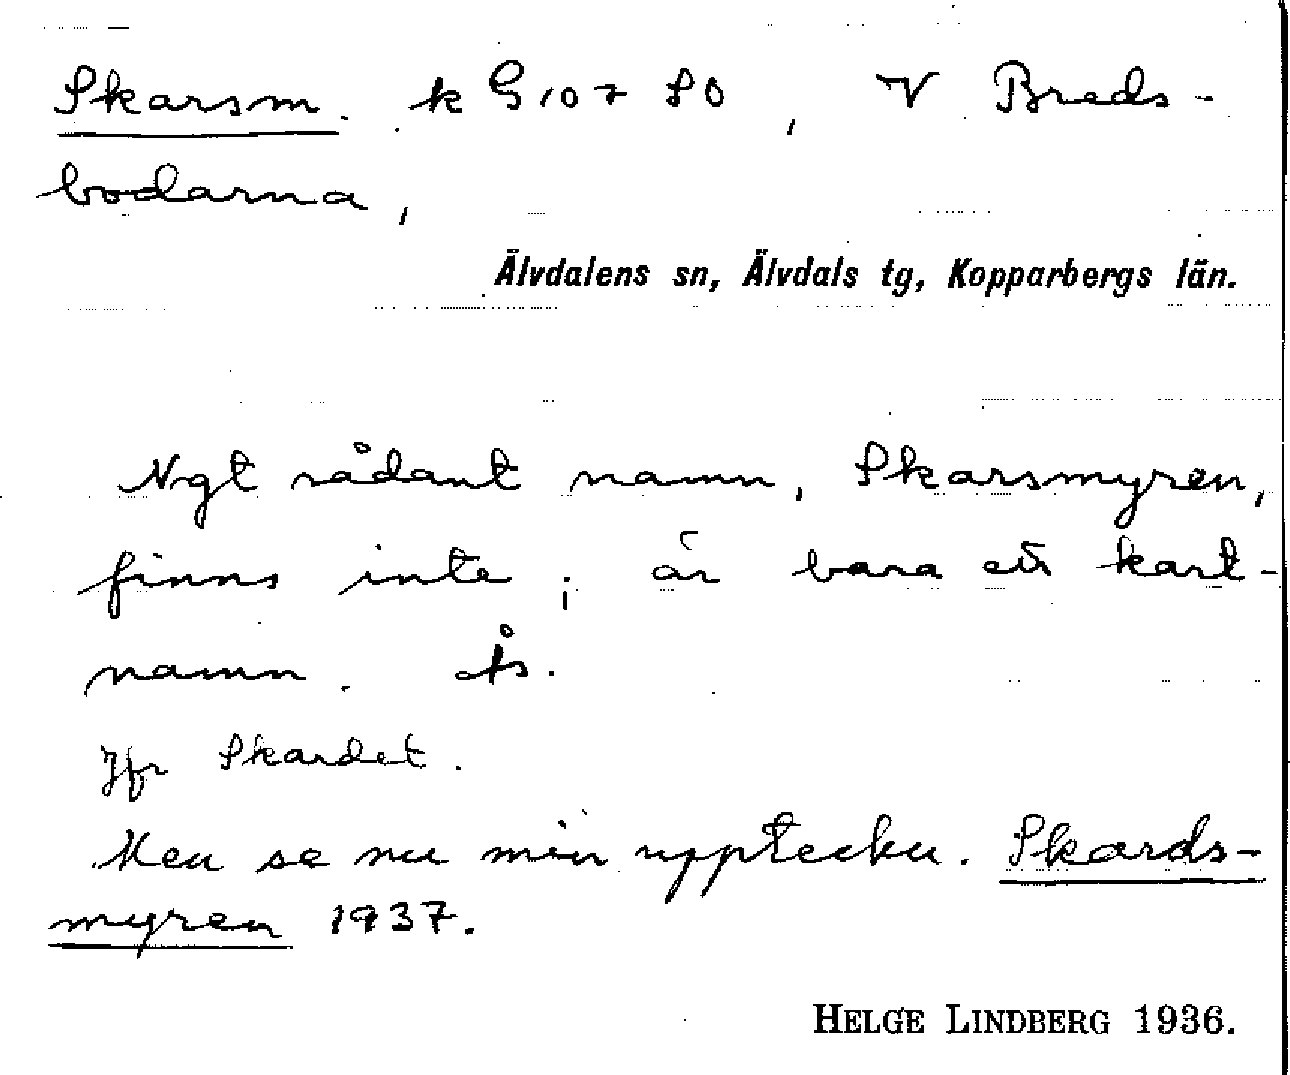 Skarsm. k G 107 SO, V Breds-
bodarna,
Älvdalens sn, Älvdals tg, Kopparbergs län.
Ngt sådant namn, Skarsmyren,
finns inte; är bara ett kart-
namn. Ås.
Jfr Skardet.
Men se nu min uppteckn. Skards-
myren 1937.
HELGE LINDBERG 1936.